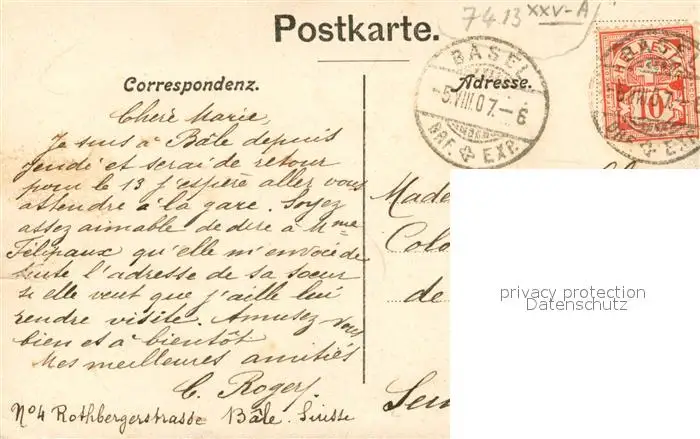 74.13 XXV-A
Postkarte.
BASEL
-5.VIII.07.-6
BRF. EXP.
HELVETIA
10
Correspondenz.
Adresse.
Cherè Marie,
Je suis à Bâle depuis
jeudi et serai de retour
pour le 13 j'espère aller vous
attendre à la gare. Soyez
assez aimable de dire à Mme
Félipaux qu'elle m'envoie de
suite l'adresse de sa soeur
si elle veut que j'aille lui
rendre visite. Amusez vous
bien et à bientôt
Mes meilleures amitiés
C. Roger
No4 Rothbergerstrasse Bâle. Suisse
Made
Colo
de
privacy protection
Datenschutz